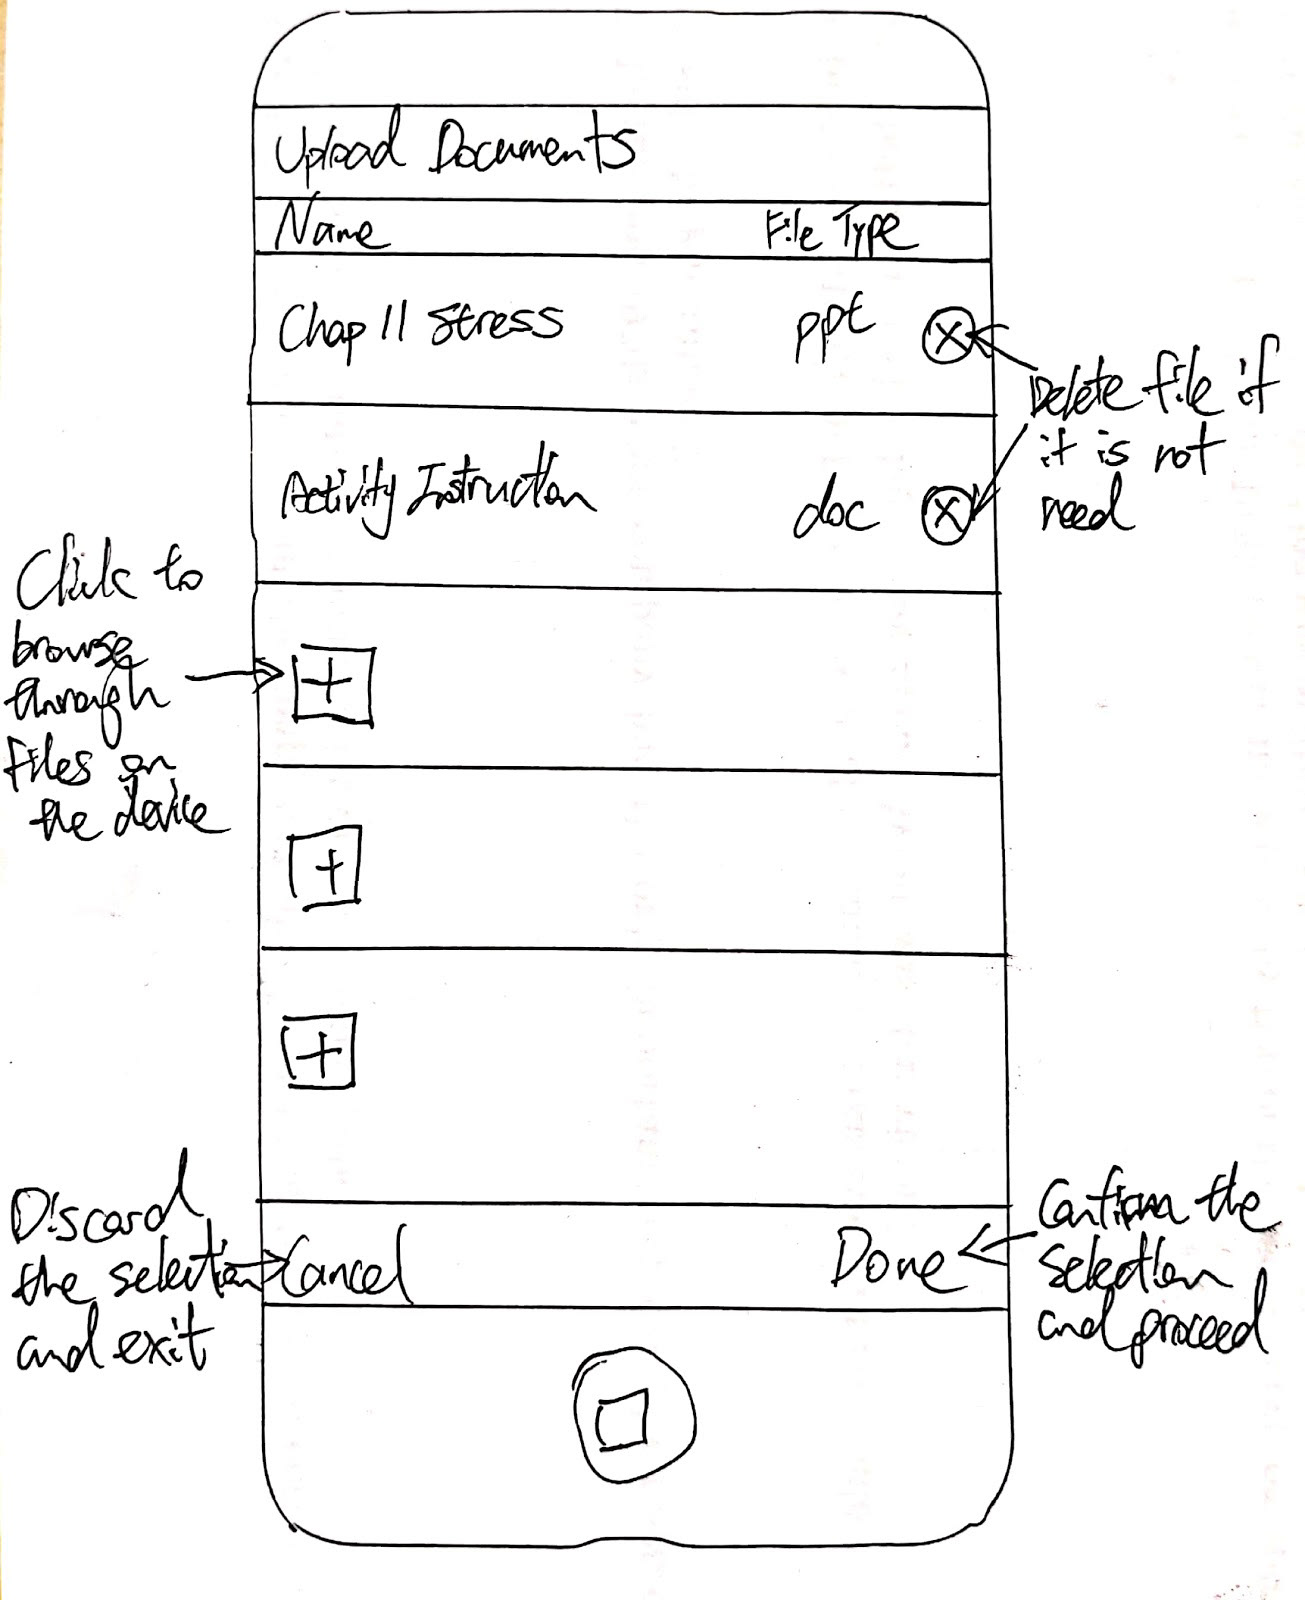 Upload Documents
Name File Type
Chap 11 Stress ppt X
Delete file if
it is not
need
Activity Instruction doc X
Click to
browse
through
files on
the device
+
+
+
Discard
the selection
and exit
Cancel Done
Confirm the
selection
and proceed